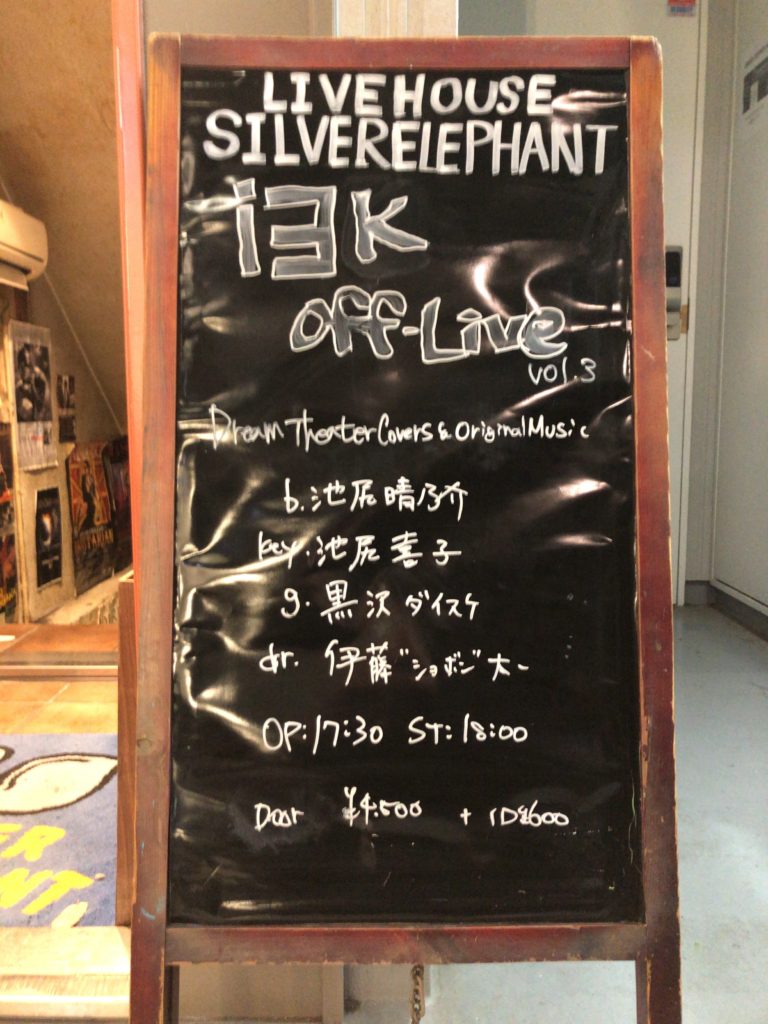 LIVEHOUSE
SILVERELEPHANT
i3k
Off-Live
vol.3
Dream Theater Covers & Original Music
b. 池尻晴乃介
key. 池尻喜子
g. 黒沢ダイスケ
dr. 伊藤"ショボン"太一
OP: 17:30 ST: 18:00
Door ¥4.500 + 1D¥600